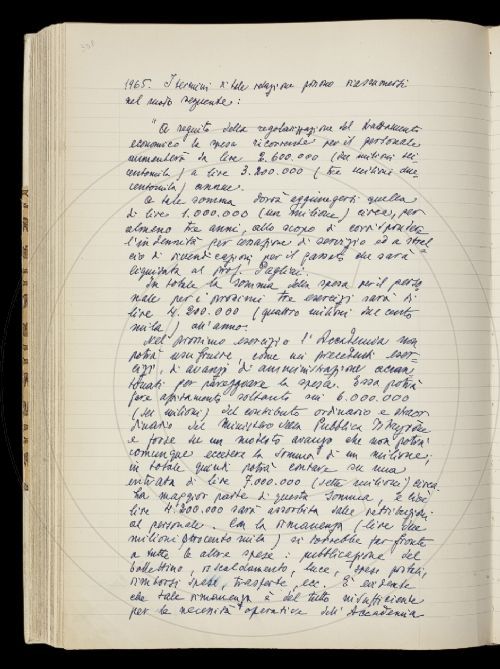 1965. I termini di tale relazione possono riassumersi
nel modo seguente:
"A seguito della regolarizzazione del trattamento
economico la spesa ricorrente per il personale
aumenterà da lire 2.600.000 (due milioni sei-
centomila) a lire 3.200.000 (tre milioni due-
centomila) annue.
A tale somma dovrà aggiungersi quella
di lire 1.000.000 (un milione) circa, per
almeno tre anni, allo scopo di corrispondere
l'indennità per cessazione di servizio ed a stral-
cio di rivendicazioni per il passato che sarà
liquidata al prof. Pagliai.
In totale la somma della spesa per il perso-
nale per i prossimi tre esercizi sarà di
lire 4.200.000 (quattro milioni due cento
mila) all'anno.
Nel prossimo esercizio l'Accademia non
potrà usufruire come nei precedenti eser-
cizi, di avanzi di amministrazione accan-
tonati per pareggiare la spesa. Essa potrà
fare affidamento soltanto sui 6.000.000
(sei milioni) del contributo ordinario e straor-
dinario del Ministero della Pubblica Istruzione
e forse su un modesto avanzo che non potrà
comunque eccedere la somma di un milione;
in totale quindi potrà contare su una
entrata di lire 7.000.000 (sette milioni) circa.
La maggior parte di questa somma, e cioè
lire 4.200.000 sarà assorbita dalle retribuzioni
al personale. Con la rimanenza (lire due
milioni ottocento mila) si dovrebbe far fronte
a tutte le altre spese: pubblicazione del
bollettino, riscaldamento, luce, spese postali,
rimborsi spese, trasporti, ecc. È evidente
che tale rimanenza è del tutto insufficiente
per le necessità operative dell'Accademia